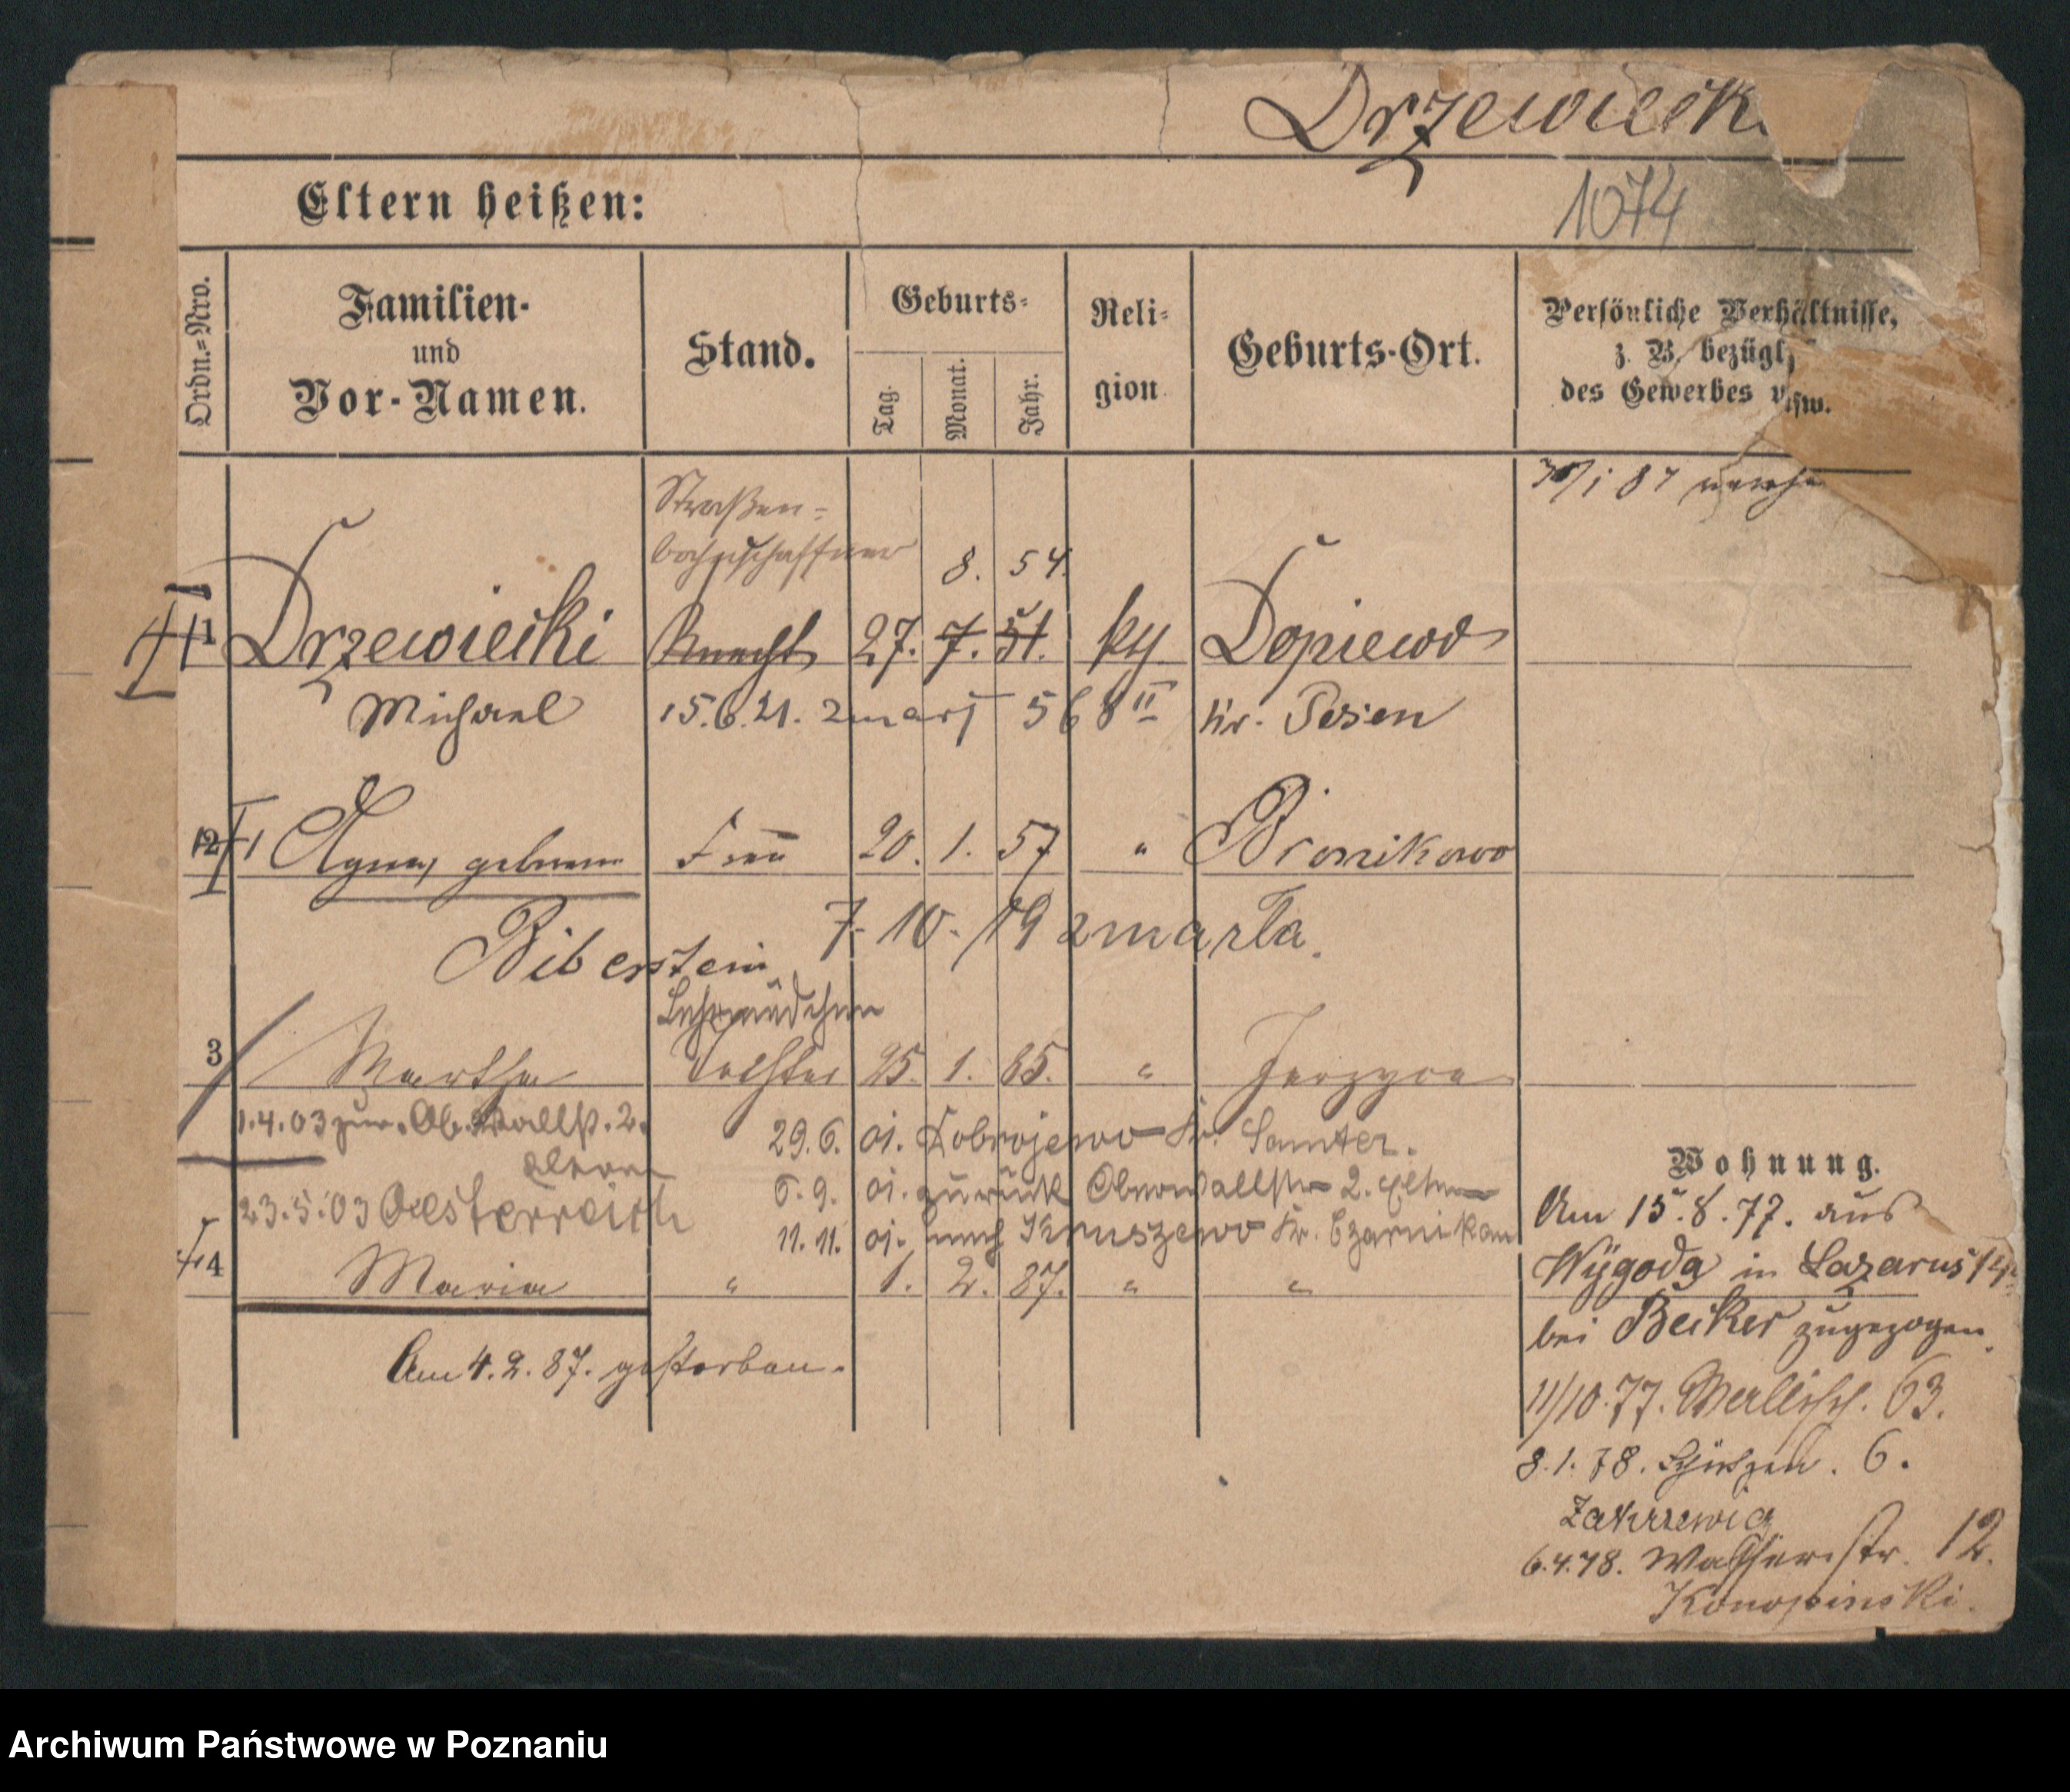 Drzewieck
1074
Eltern heißen:
Ordn.=Nro.
Familien-
und
Vor-Namen.
Stand.
Geburts-
Tag.
Monat.
Jahr.
Reli-
gion
Geburts-Ort.
Persönliche Verhältnisse,
z. B. bezügl.
des Gewerbes usw.
Straßen-
bahnschaffner
8. 54.
1 Drzewiecki Knecht 27. 7. 51. kth Dopiewo
Michael 15.6.21. zmarł 568 II Kr. Posen
2 Agnes, geborene Frau 20. 1. 57 " Bronikowo
Biberstein 7. 10. 19 zmarła.
Lehrmädchen
3 Martha Tochter 25. 1. 85. " Jerzyce
1.4.03 zur. Ob. Wallstr. 2.
Eltern
29.6. 01. Dobrojewo Kr. Samter.
23.5.03 Oesterreich
6.9. 01. zurück Oberwallstr 2. Eltern
11.11. 01. nach Kruszewo Kr. Czarnikau
4 Maria " 1. 2. 87. " "
Am 4.2.87. gestorben.
Wohnung.
Am 15.8.77. aus
Wygoda in Lazarus
bei Beiker zugezogen
11/10.77. 63.
8.1.78. Schützen. 6.
6.4.78. Wasserstr. 12.
Konopinski.